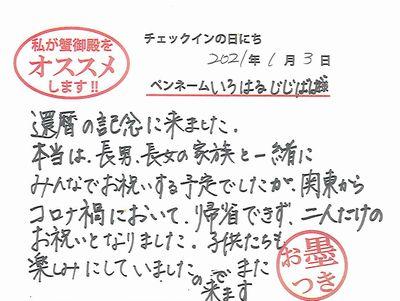 私が蟹御殿を
オススメ
します!!
チェックインの日にち
2021年 1月 3日
ペンネーム いろはるじじばば様
還暦の記念に来ました。
本当は、長男、長女の家族と一緒に
みんなでお祝いする予定でしたが、関東から
コロナ禍において、帰省できず、二人だけの
お祝いとなりました。子供たちも
楽しみにしていましたのでまた
来ます
お墨
つき